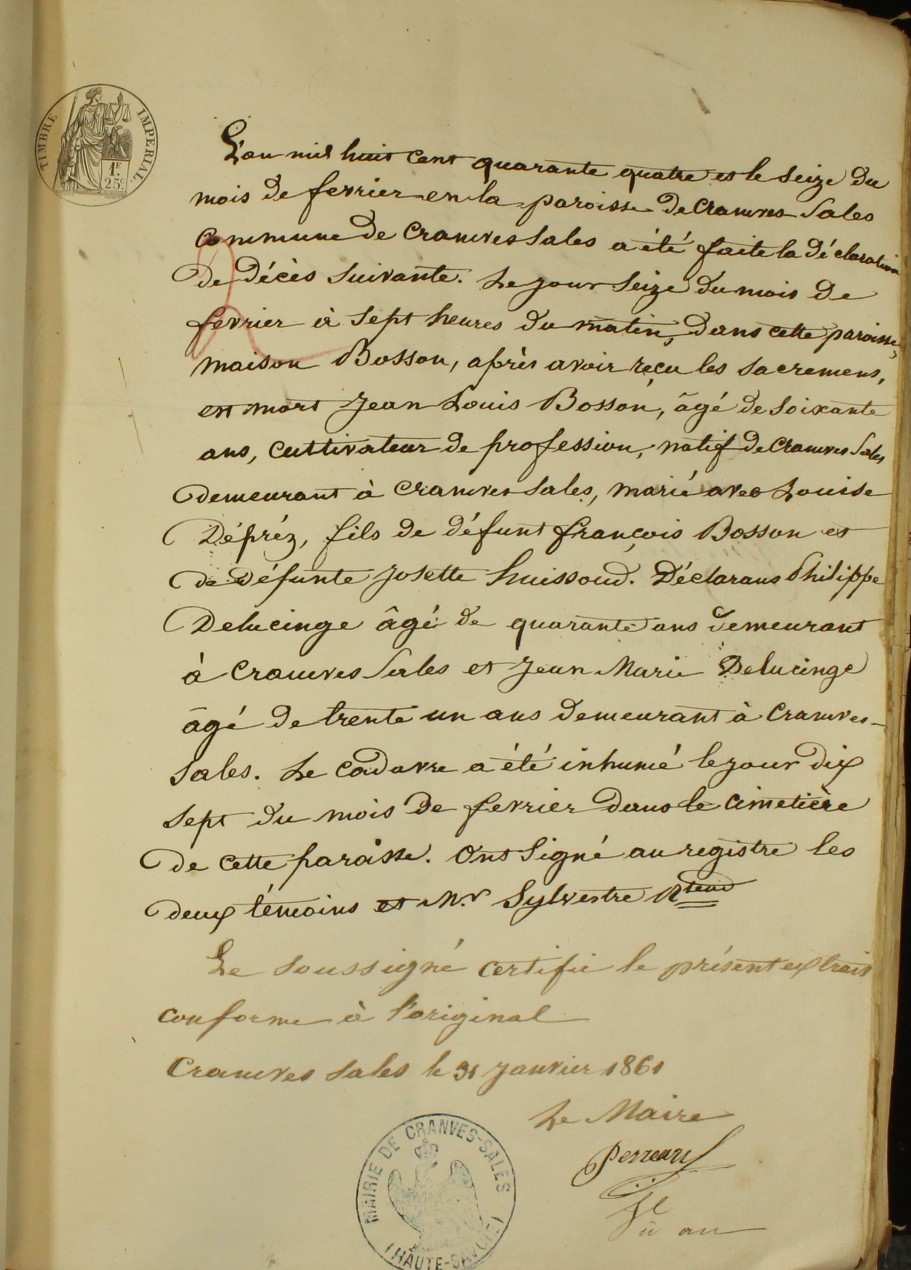 TIMBRE IMPERIAL
1F
25c
L'an mil huit cent quarante quatre et le seize du
mois de fevrier en la paroisse de Cranves Sales
commune de Cranves Sales a été faite la déclaration
de décès suivante. Le jour seize du mois de
fevrier à sept heures du matin, dans cette paroisse,
maison Bosson, après avoir reçu les sacremens,
est mort Jean Louis Bosson, âgé de soixante
ans, cultivateur de profession, natif de Cranves Sales
demeurant à Cranves Sales, marié avec Louise
Dépréz, fils de défunt françois Bosson et
de défunte Josette huissoud. Déclarans Philippe
Delucinge âgé de quarante ans demeurant
à Cranves Sales et Jean Marie Delucinge
âgé de trente un ans demeurant à Cranves-
Sales. Le cadavre a été inhumé le jour dix
sept du mois de fevrier dans le cimetière
de cette paroisse. Ont signé au registre les
deux témoins et Mr Sylvestre
Le soussigné certifie le présent extrait
conforme à l'original
Cranves Sales le 31 Janvier 1861
Le Maire
MAIRIE DE CRANVES-SALES
(HAUTE-SAVOIE)